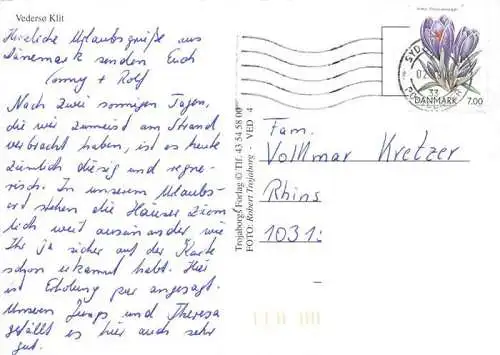 Vedersø Klit
Herzliche Urlaubsgrüße aus
Dänemark senden Euch
Conny + Rolf
Nach zwei sonnigen Tagen,
die wir zumeist am Strand
verbracht haben, ist es heute
ziemlich diesig und regne-
risch. In unserem Urlaubs-
ort stehen die Häuser ziem
lich weit auseinander wie
Ihr ja sicher auf der Karte
schon erkannt habt. Hier
ist Erholung pur angesagt.
Unseren Jungs und Theresa
gefällt es hier auch sehr
gut.
Trojaborgs Forlag © Tlf. 43 54 58 00
FOTO: Robert Trojaborg - VED 4
DANMARK 7.00
Fam.
Volkmar Kretzer
Rhins
1031: